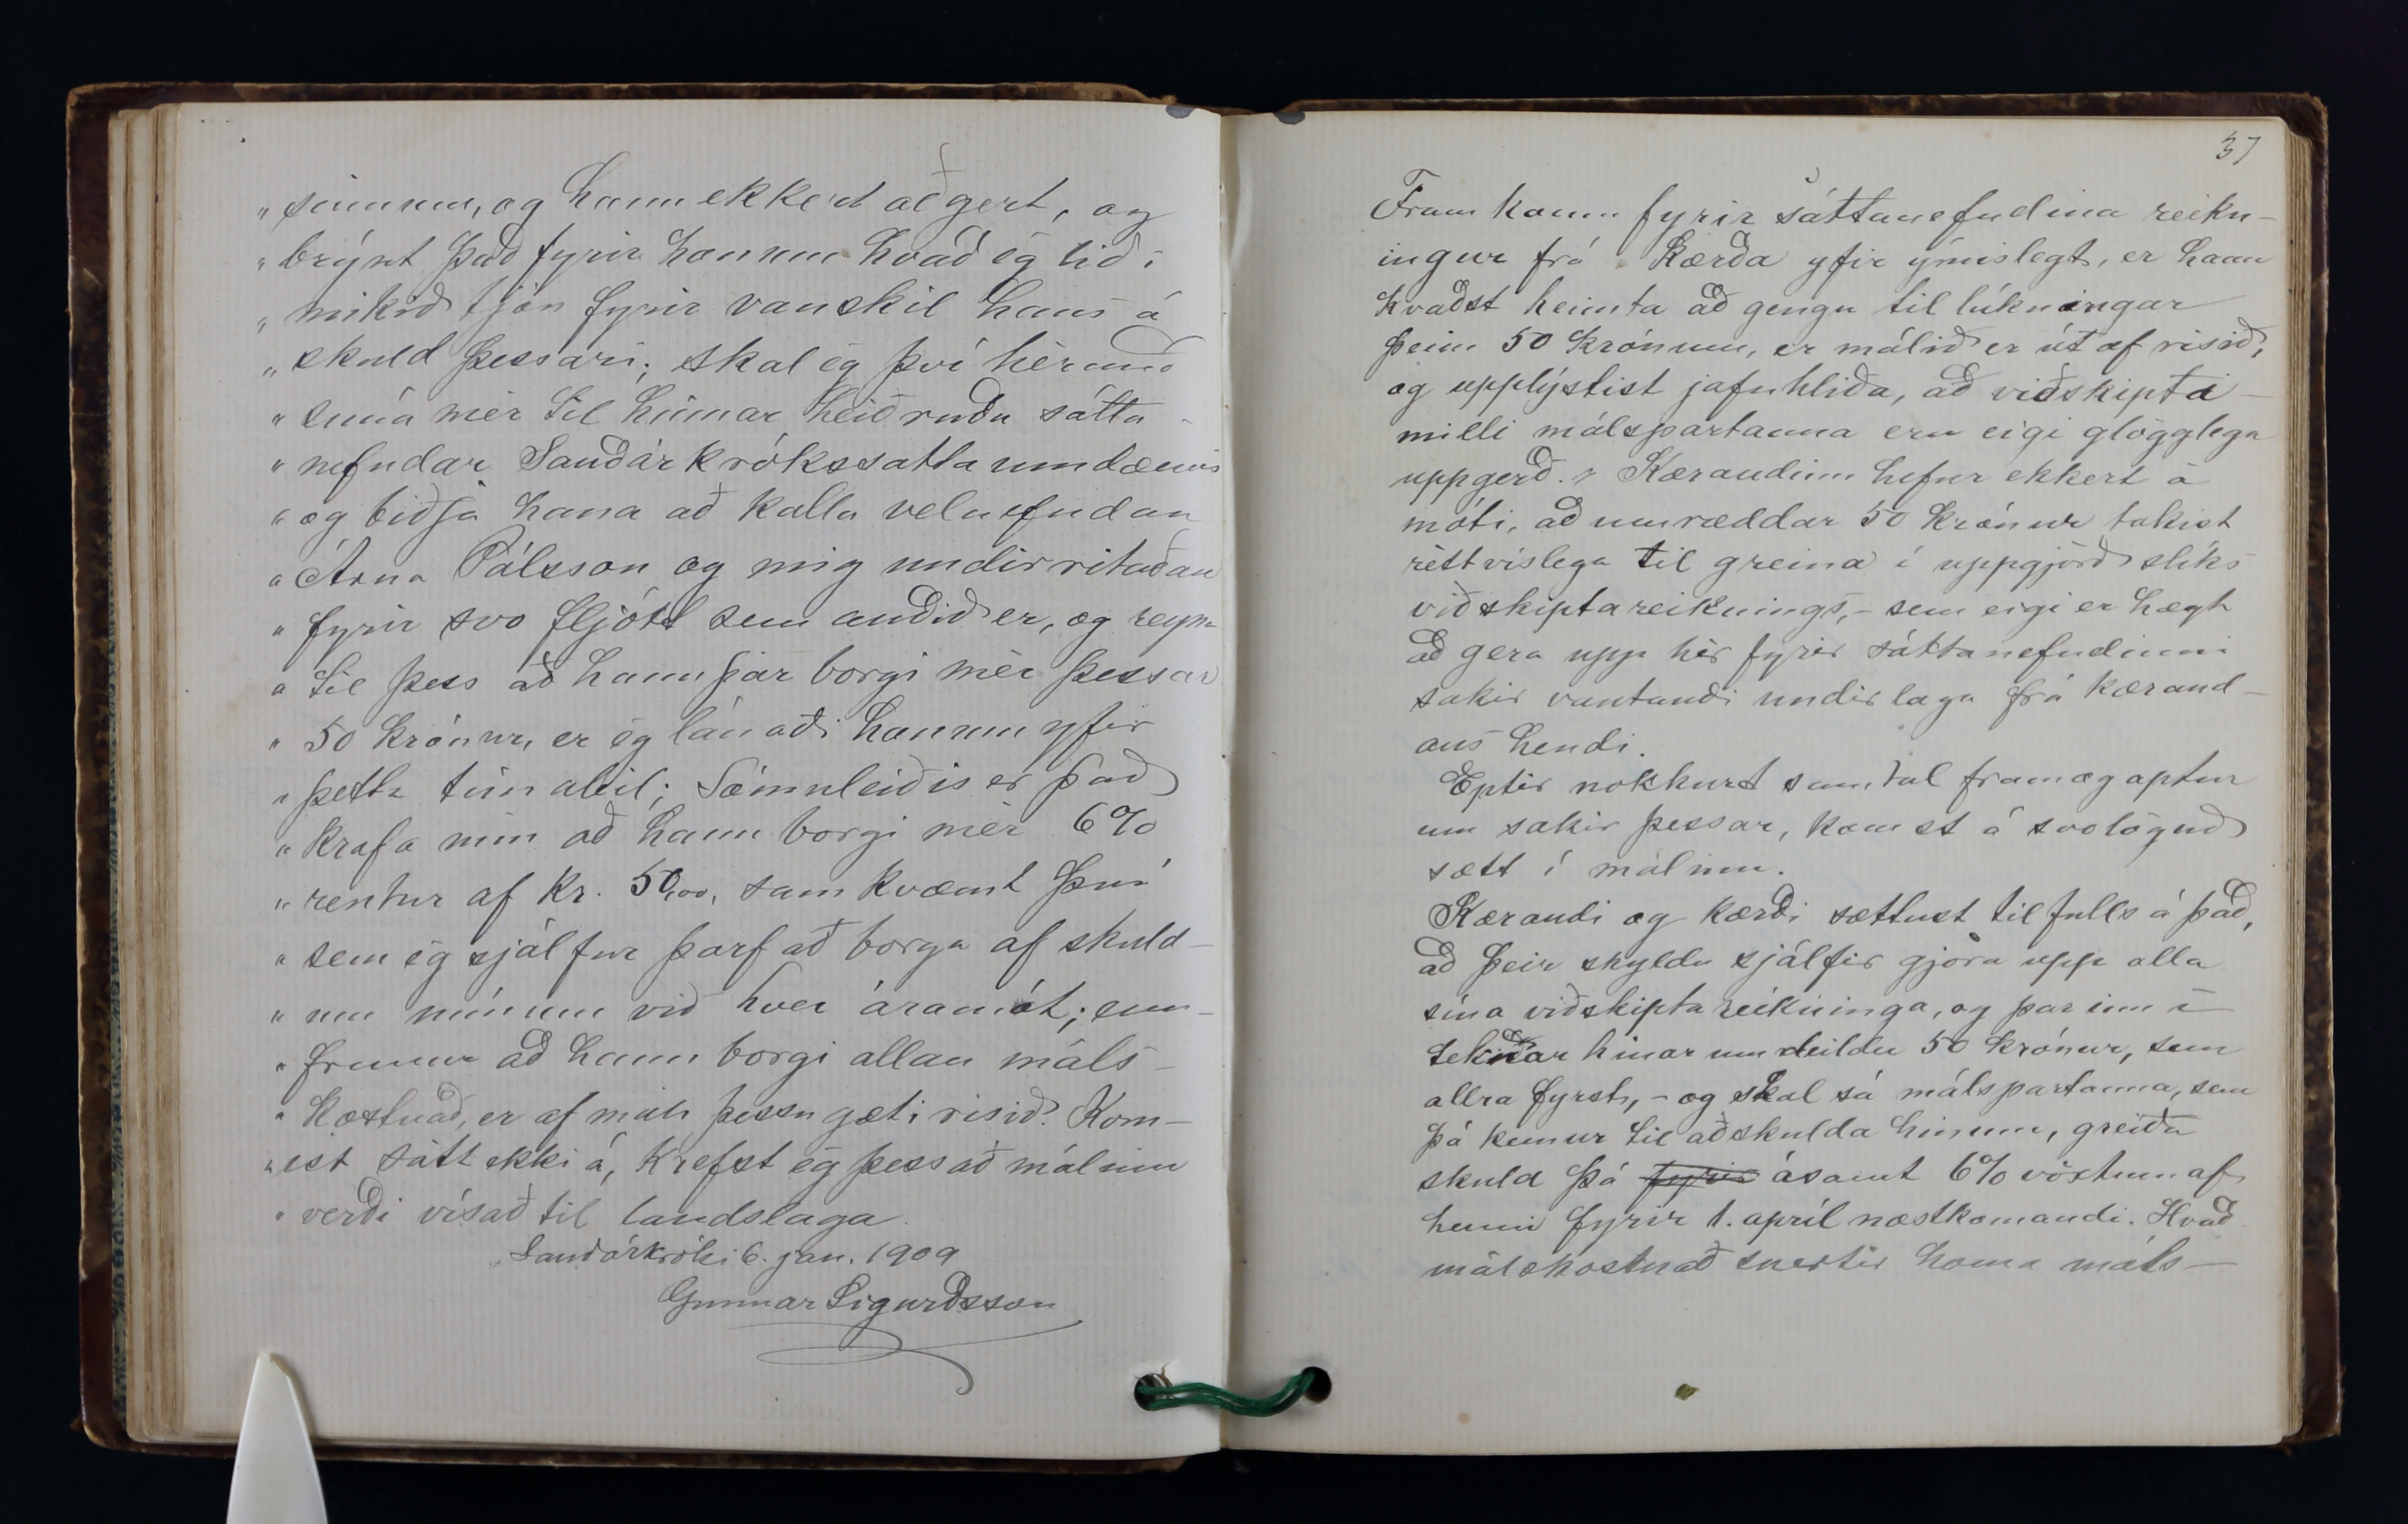 „sinnum, og hann ekkert að gert, og
„brýnt það fyrir honum hvað ég lið í
„mikið tjón fyrir vanskil hans á
„skuld þessari; skal ég því hérmeð
„snúa mér til hinnar heiðruðu sátta-
„nefndar Sauðárkrókssáttaumdæmis
„og biðja hana að kalla velnefndan
„Árna Pálsson og mig undirritaðan
„fyrir svo fljótt sem auðið er, og reyna
„til þess að hann þar borgi mér þessar
„50 krónur, er ég lánaði honum yfir
„þetta tímabil; Sömuleiðis er það
„krafa mín að hann borgi mér 6%
„rentur af kr. 50,00, samkvæmt því
„sem ég sjálfur þarf að borga af skuld-
„um mínum við hver áramót; enn-
„fremur að hann borgi allan máls-
„kostnað, er af máli þessu gæti risið. Kom-
„ist sátt ekki á, krefst ég þess að málinu
„verði vísað til landslaga.
Sauðárkróki 6. jan. 1909
Gunnar Sigurðsson
37
Fram kom fyrir sáttanefndina reikn-
ingur frá kærða yfir ýmislegt, er hann
kvaðst heimta að gengu til lúkningar
þeim 50 krónum, er málið er út af risið,
og upplýstist jafnhliða, að viðskipta
milli málspartanna eru eigi glögglega
uppgerð. Kærandinn hefur ekkert á
móti, að umræddar 50 krónur takist
réttvíslega til greina í uppgjörð slíks
viðskiptareiknings, - sem eigi er hægt
að gera upp hér fyrir sáttanefndinni
sakir vantandi undirlaga frá kærand-
ans hendi.
Eptir nokkurt samtal fram og aptur
um sakir þessar, komst á svolögud
sætt í málinu.
Kærandi og kærði sættust til fulls á það,
að þeir skyldu sjálfir gjöra upp alla
sína viðskiptareikninga, og þar inn í
teknar hinar umdeildu 50 krónur, sem
allra fyrst, - og skal sá málspartanna, sem
þá kemur til að skulda hinum, greiða
skuld þá fyrir ásamt 6% vöxtum af
henni fyrir 1. apríl næstkomandi. Hvað
málskostnað snertir koma máls-